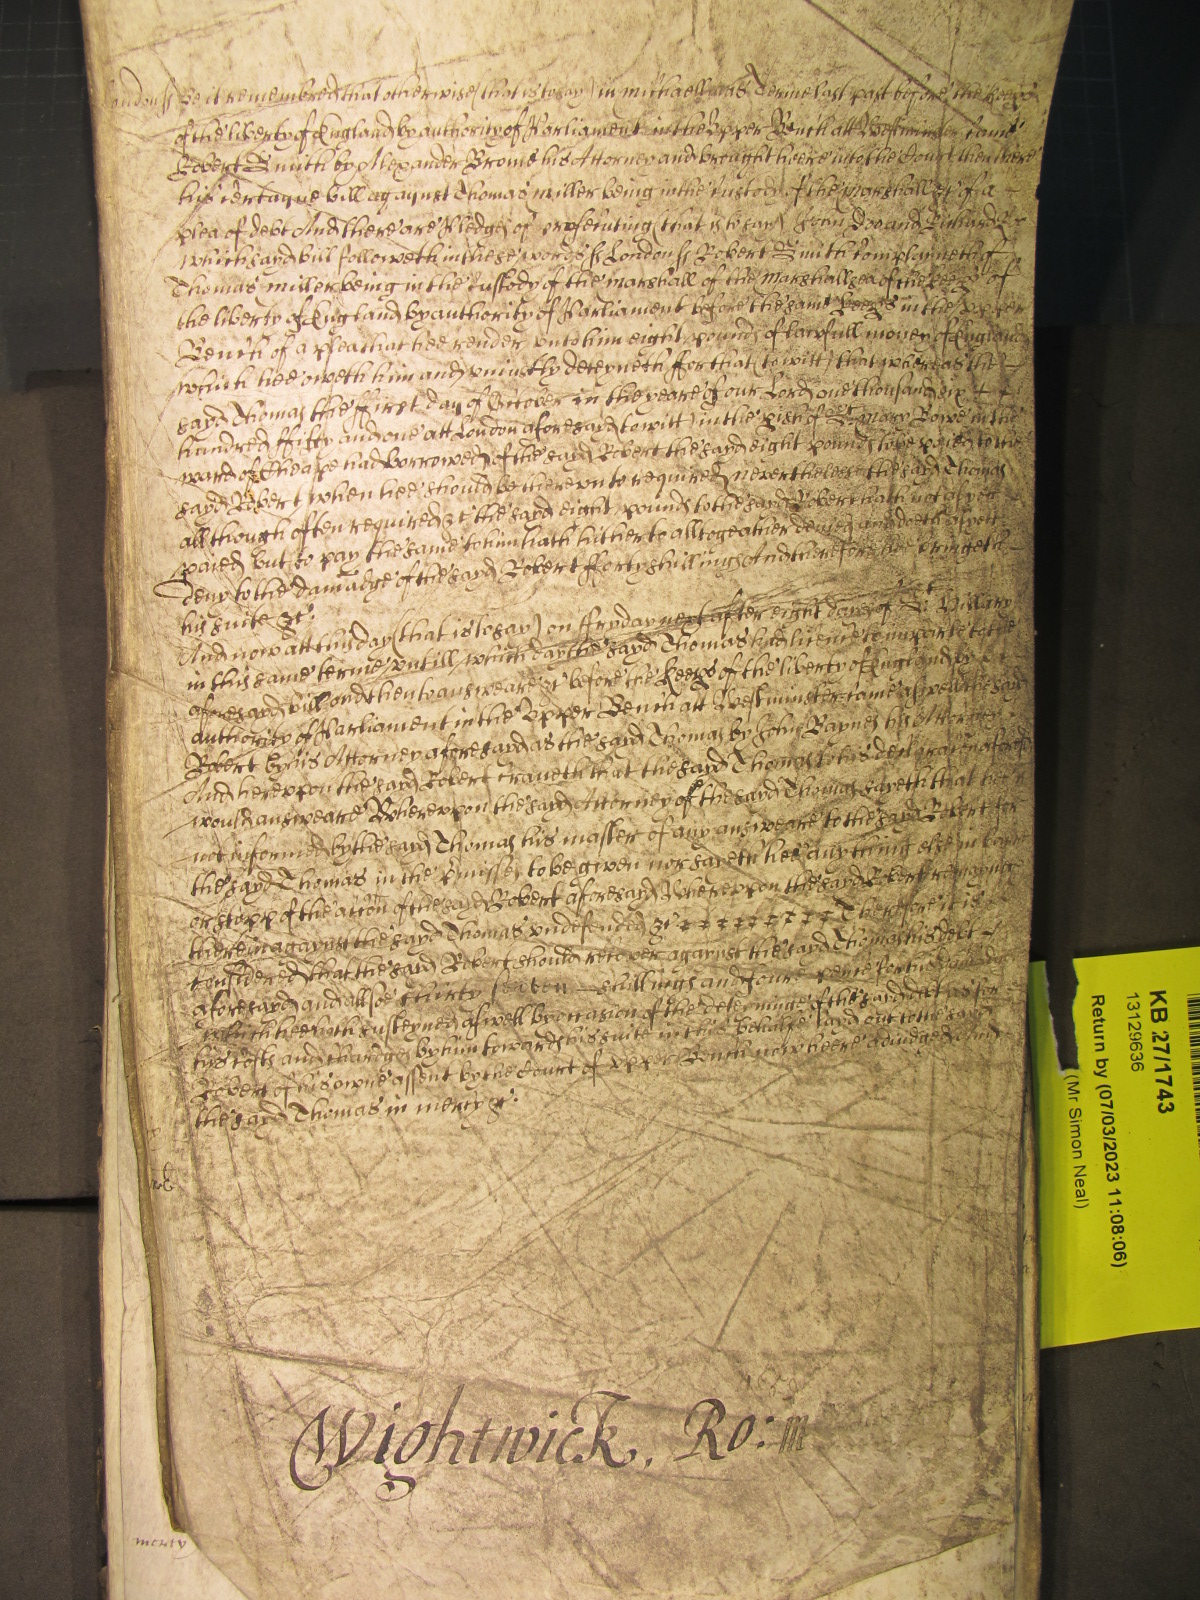 London ss Be it remembred that otherwise (that is to say) in Michaellmas Terme last past before the Keeps
of the liberty of England by authority of Parliament in the Upper Bench att Westminster came
Robert Smith by Alexander Brome his Attorney and brought heere into the Court then there
his certaque bill against Thomas Miller being in the custody of the Marshall &c of a
plea of debt And there are pledges of prosecuting (that is to say) John Doo and Richard
which sayd bill followeth in these words ss London ss Robert Smith complayneth of
Thomas Miller being in the custody of the Marshall of the Marshallsea of the Keeps of
the liberty of England by authority of Parliament before the same Keeps in the Upper
Bench of a plea that hee render unto him eight pounds of lawfull money of England
which hee oweth him and uniustly deteyneth ffor that (to witt) that whereas the
sayd Thomas the ffirst day of October in the yeare of our Lord one thousand six
hundred ffifty and one att London aforesayd (to witt) in the pish of St Mary Bowe in the
ward of Cheape had borrowed of the sayd Robert the sayd eight pounds to be payed to the
sayd Robert when hee should be thereunto required neverthelesse the sayd Thomas
allthough often required &c the sayd eight pounds to the sayd Robert hath not as yet
payed but to pay the same to him hath hitherto alltogeather denyed and doeth as yett
deny to the damadge of the sayd Robert fforty shillings And therefore hee bringeth
his suite &c
And now att this day (that is to say) on ffryday next after eight dayes of St Hillary
in this same terme untill which day the sayd Thomas had licence to imparle to the
aforesayd bill and then to answeare &c before the Keeps of the liberty of England by
authority of Parliament in the Upper Bench att Westminster came aswell the sayd
Robert by his Attorney aforesayd as the sayd Thomas by John Baynes his Attorney
And hereupon the sayd Robert craveth that the sayd Thomas to his declaracion aforesd
would answeare Whereupon the sayd Attorney of the sayd Thomas sayeth that hee is
not informed by the sayd Thomas his master of any answeare to the sayd Robert for
the sayd Thomas in the pmisses to be given nor sayeth hee any thing else in barre
or stopp of the accon of the sayd Robert aforesayd Whereupon the sayd Robert remayns
therein against the sayd Thomas undefended &c Therefore it is
considered that the sayd Robert should recover against the sayd Thomas his debt
aforesayd and allsoe thirty seaven shillings and foure pence for his damadge
which hee hath susteyned aswell by occasion of the deteyninge of the sayd debt as for
his costs and chardges by him towards his suite in this behalfe layd out to the sayd
Robert of his owne assent by the Court of Upper Bench now heere adiudged And
the sayd Thomas in mercy &c
mercy
Wightwick. Ro:
KB 27/1743
13129636
Return by (07/03/2023 11:08:06)
(Mr Simon Neal)